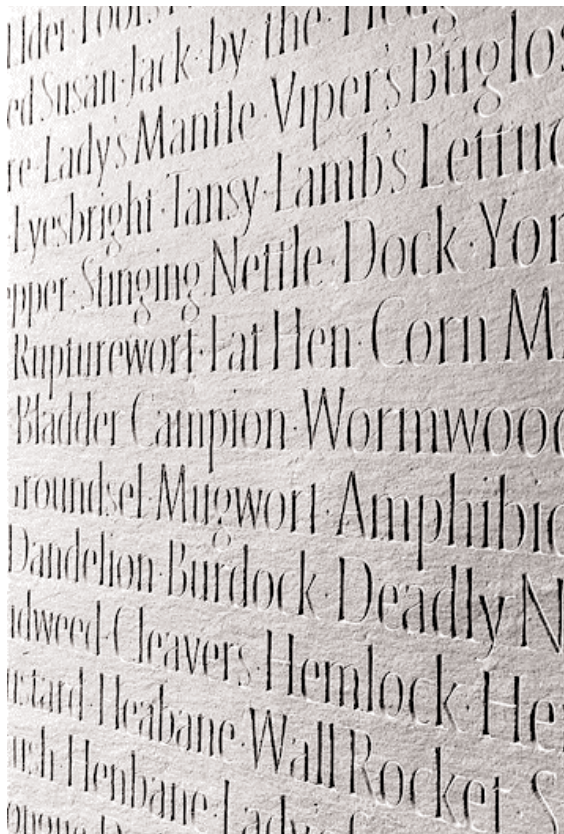 Elder·Fool's
ed Susan·Jack·by·the·Hedg
re·Lady's Mantle·Viper's Buglos
Eyesbright·Tansy·Lamb's Lettuc
epper·Stinging Nettle·Dock·Yor
Rupturewort·Fat Hen·Corn M
Bladder Campion·Wormwood
Groundsel·Mugwort·Amphibio
Dandelion·Burdock·Deadly N
ndweed·Cleavers·Hemlock·He
ustard·Fleabane·Wall Rocket·S
Henbane·Lady's